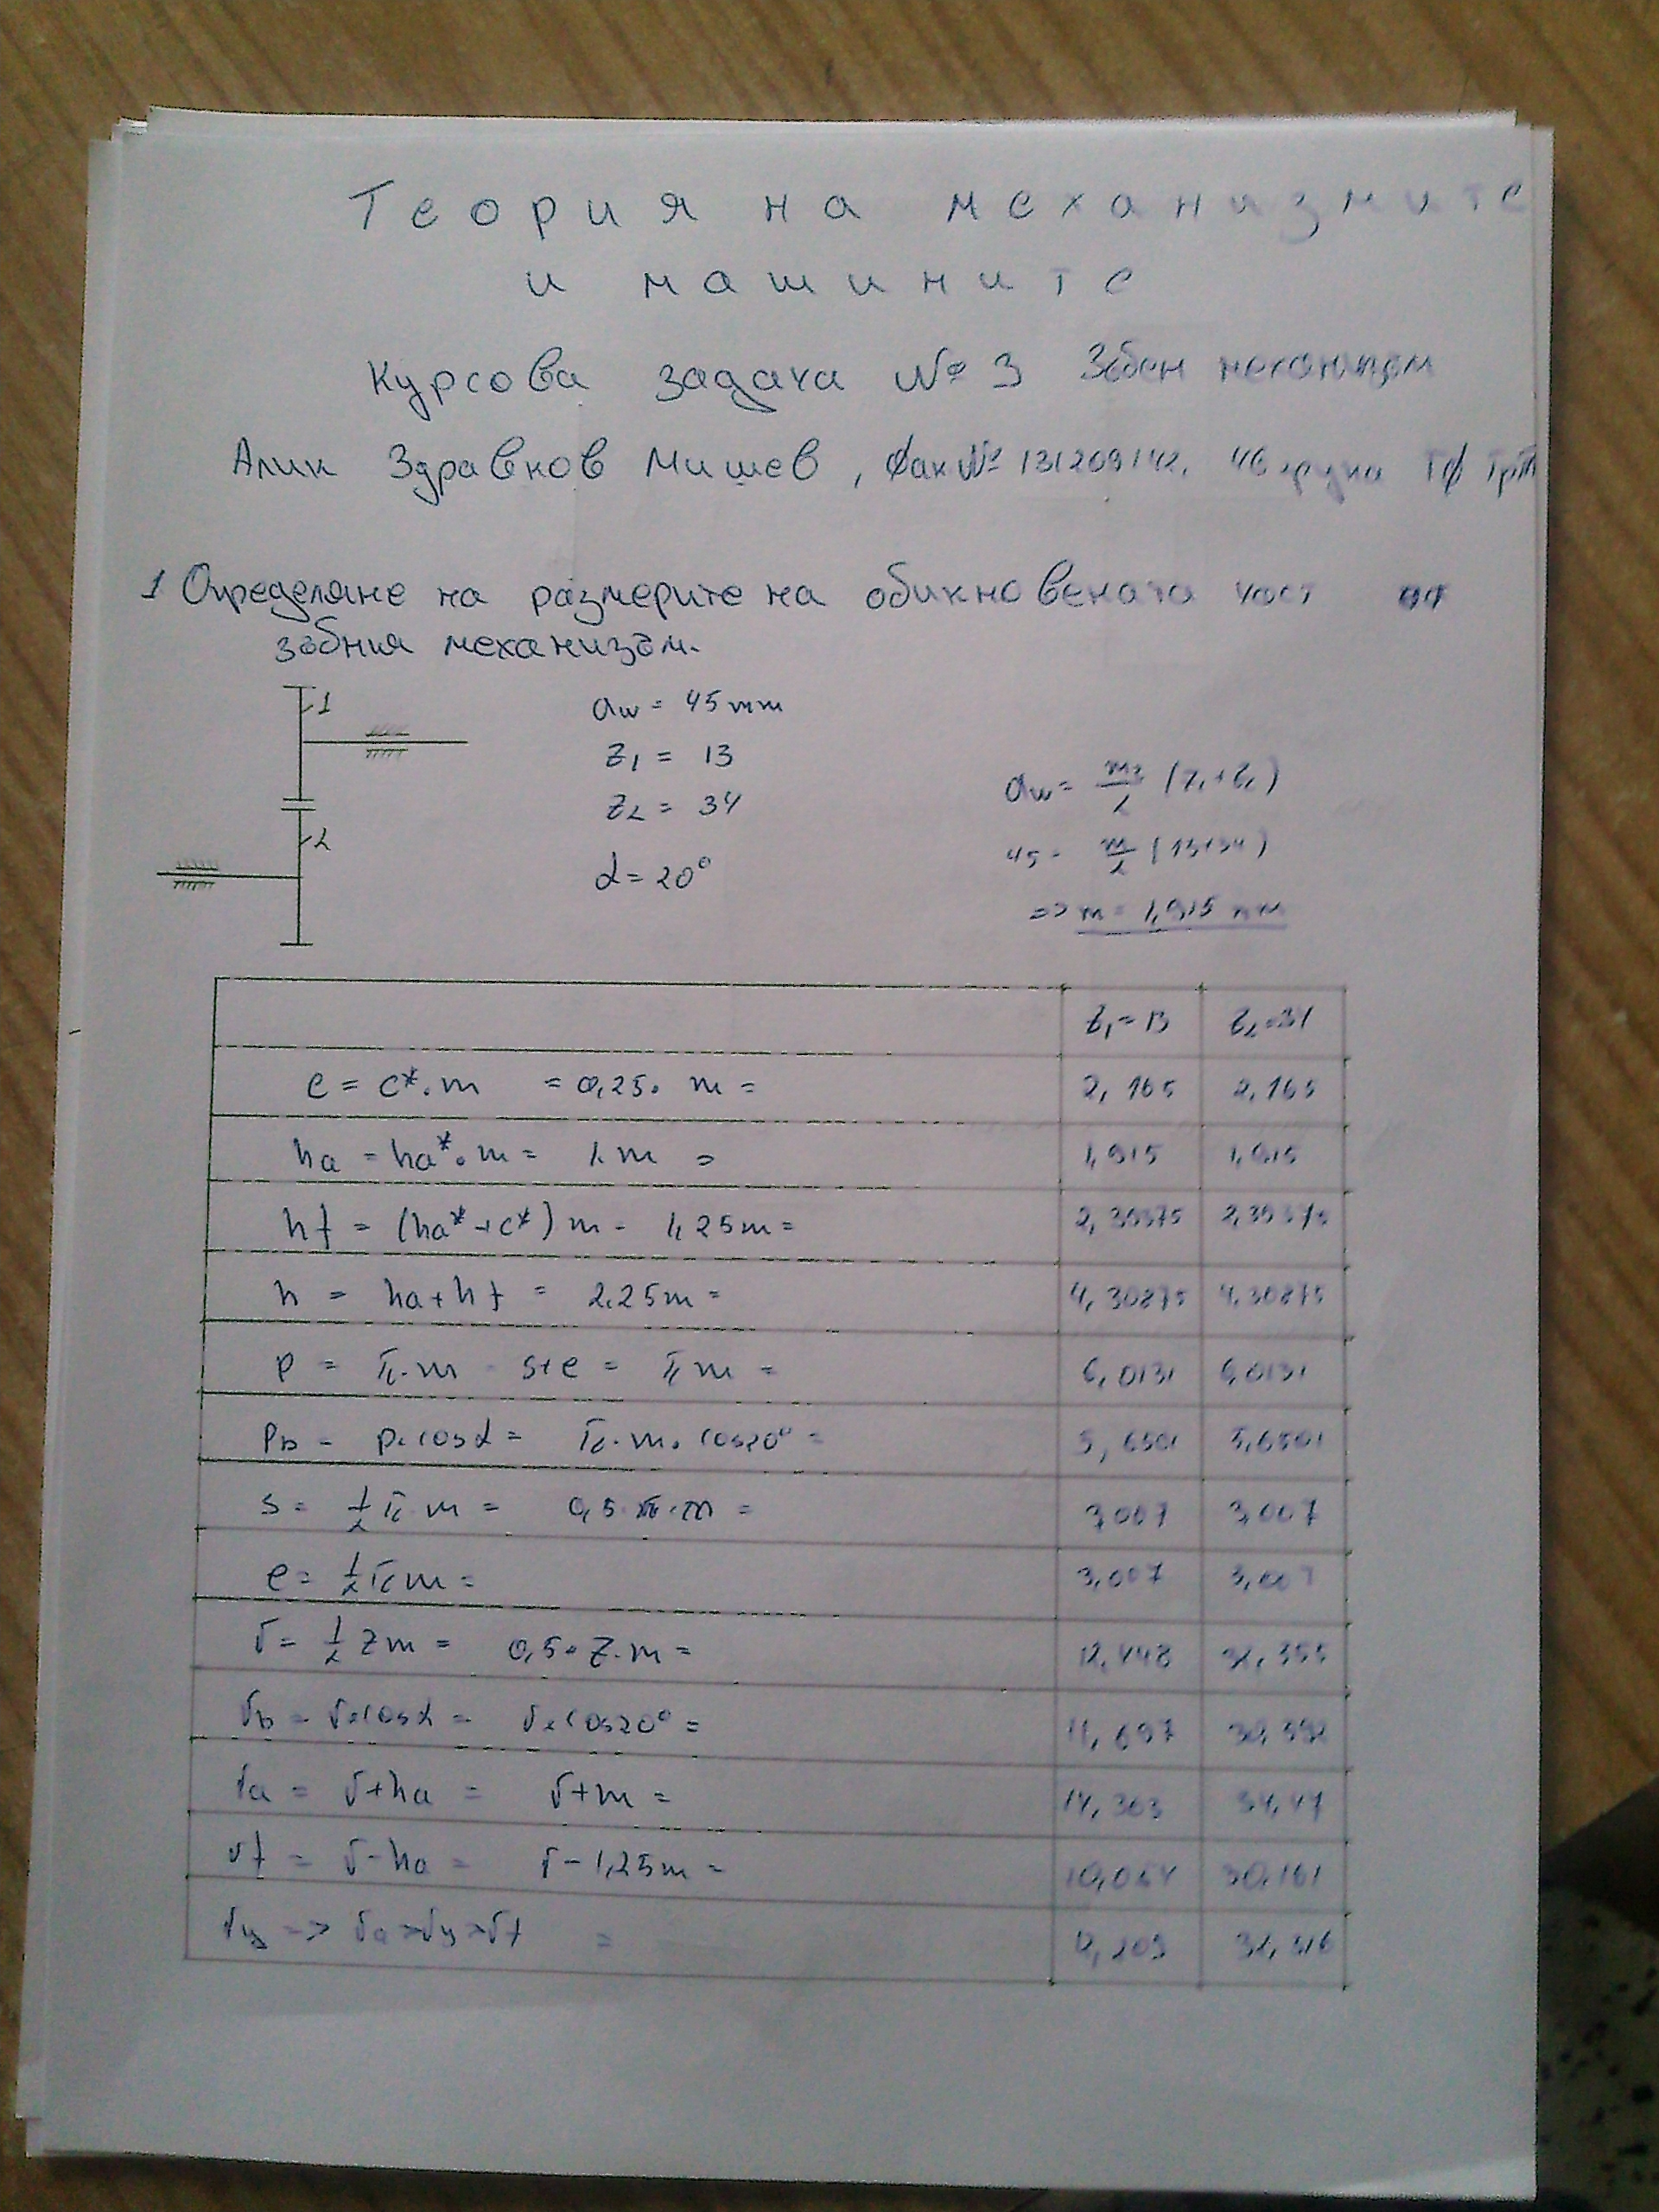 Теория на механизмите
и машините
Курсова задача № 3 Зъбен механизъм
Алик Здравков Мишев, Фак № 131209142, 46 група ТФ
1 Определяне на размерите на обикновената част на
зъбния механизъм.
1
aw = 45 mm
z1 = 13
z2 = 34
α = 20°
2
aw = m/2 (z1+z2)
45 = m/2 (13+34)
=> m = 1,915 mm
z1 = 13 z2 = 34
c = c*.m = 0,25. m = 2,165 2,165
ha = ha*.m = 1.m = 1,915 1,915
hf = (ha*+c*) m = 1,25m = 2,39375 2,39375
h = ha+hf = 2.25m = 4,30875 4,30875
p = π.m = s+e = πm = 6,0131 6,0131
pb = p.cosα = π.m.cos20° = 5,6501 5,6501
s = 1/2 π.m = 0,5.π.m = 3,007 3,007
e = 1/2 πm = 3,007 3,007
r = 1/2 zm = 0,5.z.m = 12,448 32,555
rb = r.cosα = r.cos20° = 11,697 30,592
ra = r+ha = r+m = 14,363 34,47
rf = r-ha = r-1,25m = 10,054 30,161
ry => ra>ry>rf = 12,209 32,316